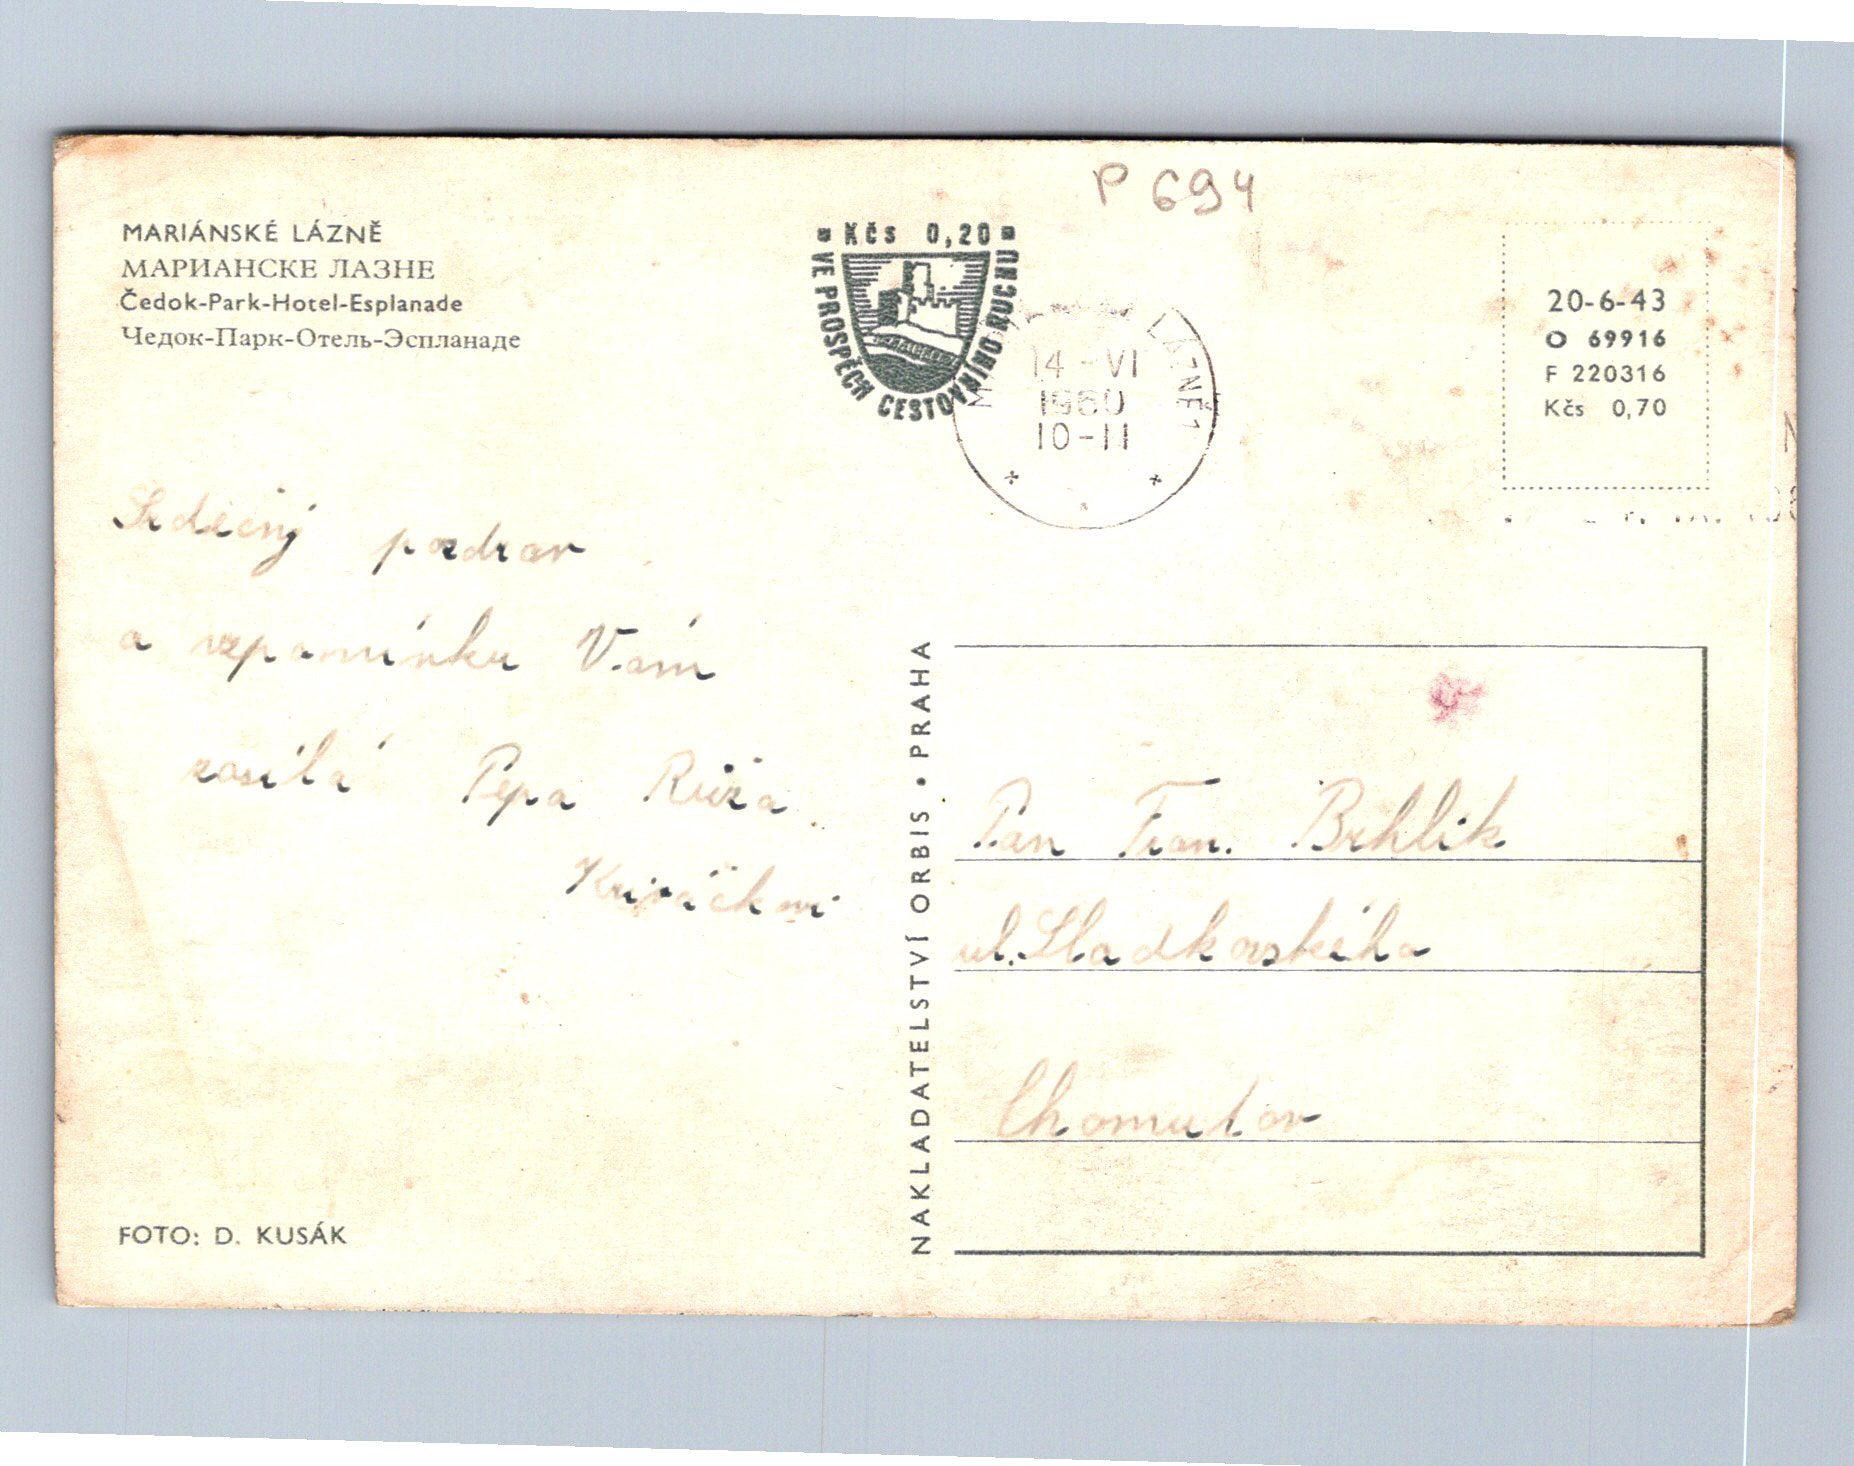 P 694
MARIÁNSKÉ LÁZNĚ
МАРИАНСКЕ ЛАЗНЕ
Čedok-Park-Hotel-Esplanade
Чедок-Парк-Отель-Эспланаде
Kčs 0,20
VE PROSPĚCH CESTOVNÍHO RUCHU
LÁZNĚ 1
14 - VI
1960
10-11
20-6-43
O 69916
F 220316
Kčs 0,70
Srdečný pozdrav
a vzpomínku Vám
zasílá Pepa Růža
NAKLADATELSTVÍ ORBIS • PRAHA
Pan Fran. Brhlík
ul. Sladkovského
Chomutov
FOTO: D. KUSÁK